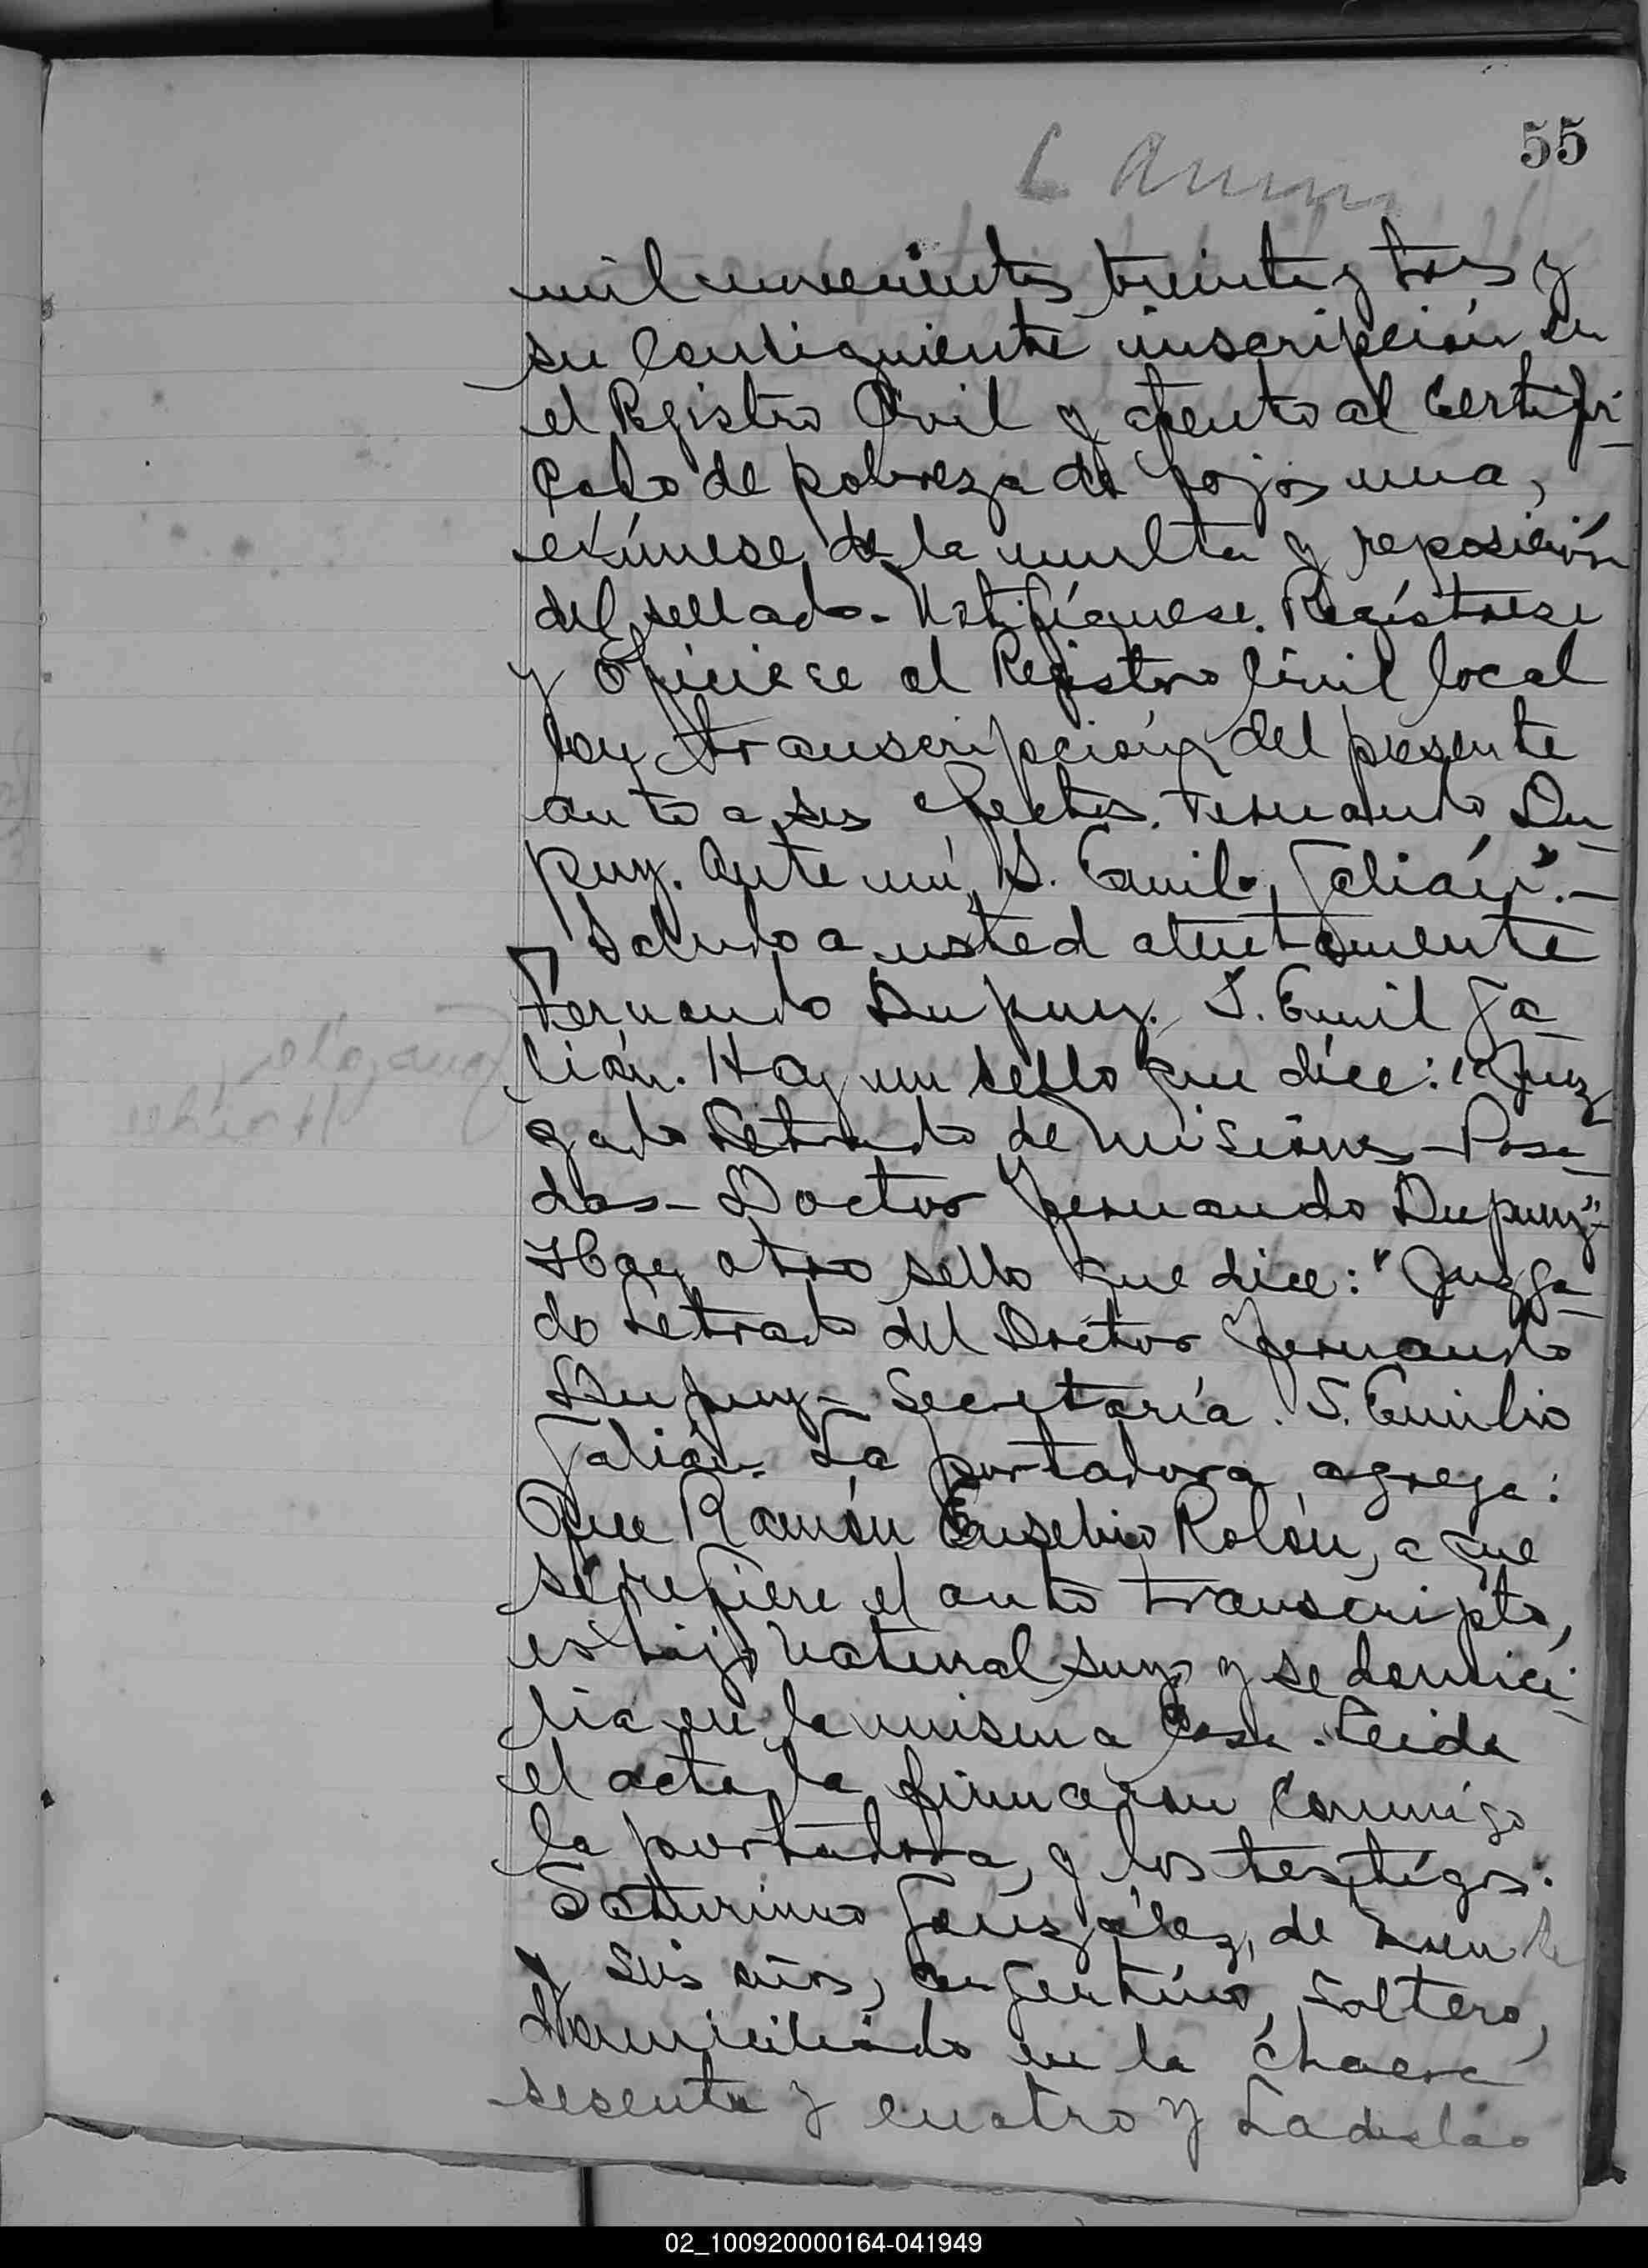 55
mil novecientos treinta y tres y
su consiguiente inscripción en
el Registro Civil y atento al certifi-
cado de pobreza de fojas una,
exímese de la multa y reposición
del sellado. Notifíquese. Regístrese
y Ofíciese al Registro Civil local
con transcripción del presente
auto a sus efectos. Fernando Du-
puy. Ante mí, S. Emil. Galián".-
Saludo a usted atentamente
Fernando Dupuy. S. Emil Ga-
lián. Hay un sello que dice: "Juz
gado Letrado de Misiones - Posa-
das - Doctor Fernando Dupuy"-
Hay otro sello que dice: "Juzga-
do Letrado del Doctor Fernando
Dupuy - Secretaría. S. Emilio
Galián. La portadora agrega:
Que Ramón Eusebio Rolón, a que
se refiere el auto transcripto,
es hijo natural suyo y se domici-
lia en la misma casa. Leida
el acta la firmaron conmigo
la portadora, y los testigos:
Saturnino González, de
y seis años, argentino, soltero,
domiciliado en la chacra
sesenta y cuatro y Ladislao
02_100920000164-041949